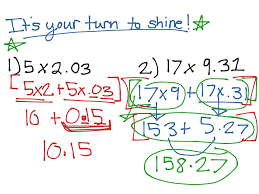 It's your turn to shine!
1) 5 x 2.03
[5x2 + 5x.03]
10 + 0.15
10.15
2) 17 x 9.31
[17x9 + 17x.31]
153 + 5.27
158.27